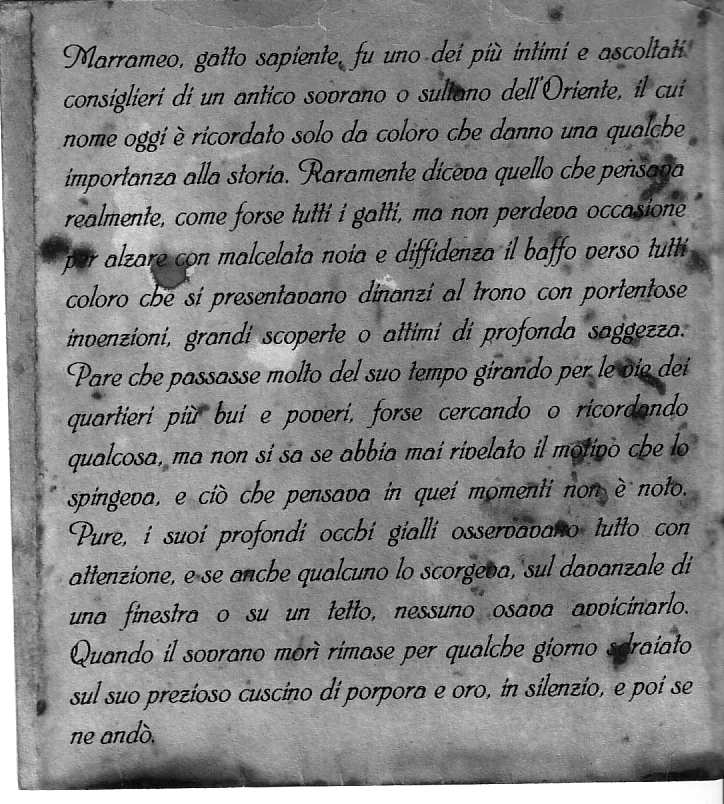 Marrameo, gatto sapiente, fu uno dei più intimi e ascoltati
consiglieri di un antico sovrano o sultano dell'Oriente, il cui
nome oggi è ricordato solo da coloro che danno una qualche
importanza alla storia. Raramente diceva quello che pensava
realmente, come forse tutti i gatti, ma non perdeva occasione
per alzare con malcelata noia e diffidenza il baffo verso tutti
coloro che si presentavano dinanzi al trono con portentose
invenzioni, grandi scoperte o attimi di profonda saggezza.
Pare che passasse molto del suo tempo girando per le vie dei
quartieri più bui e poveri, forse cercando o ricordando
qualcosa, ma non si sa se abbia mai rivelato il motivo che lo
spingeva, e ciò che pensava in quei momenti non è noto.
Pure, i suoi profondi occhi gialli osservavano tutto con
attenzione, e se anche qualcuno lo scorgeva, sul davanzale di
una finestra o su un tetto, nessuno osava avvicinarlo.
Quando il sovrano morì rimase per qualche giorno sdraiato
sul suo prezioso cuscino di porpora e oro, in silenzio, e poi se
ne andò.